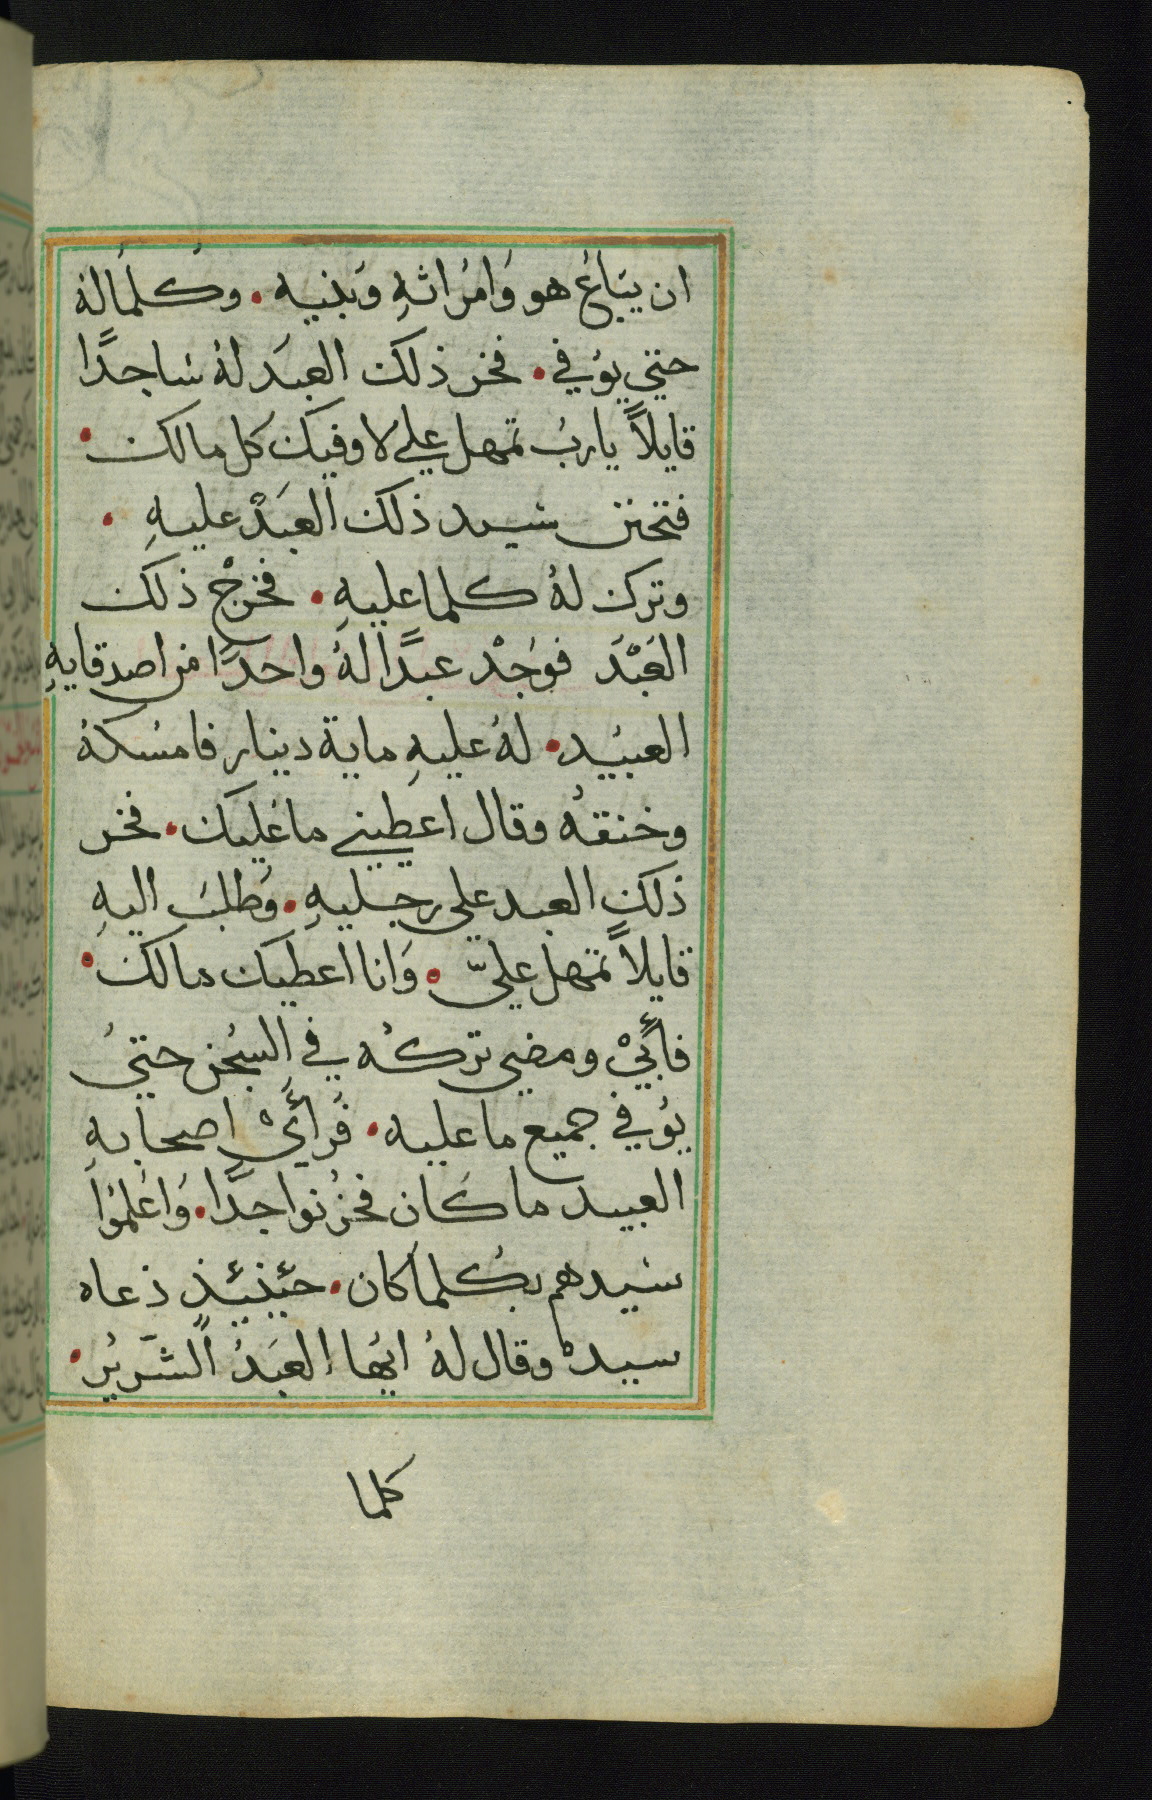 ان يبَاعُ هو وَامرَاتهِ وَبنيه • وكلمَا لهُ
حتي يوُفي • فخر ذلك العبدَ لهُ سَاجدًا
قايلاً يا ربُ تمهل علي لاوفيك كل مالك •
فتحنن سيد ذلك العبَدْ عليهِ •
وترك لهُ كلما عليهِ • فخرجْ ذلك
العَبْدَ فوَجدْ عبدًا لهُ واحدًا من اصدقايهِ
العبيد • لهُ عليهِ ماية دينار فامسكهُ
وخنقهُ وقال اعطيني ما عليك • فخر
ذلك العبد علي رجليهِ • وَطلبَ اليهِ
قايلاً تمهل عليّ • وَانا اعطيك مالك •
فأبيْ ومضي تركهُ في السجن حتيُ
يوُفي جميع ما عليه • فرَأيْ اصحابهِ
العبيد ما كان فحزُنوا جدًا • وَاعُلموُا
سيدهم بكلما كان • حئنئذ دعاه
سيدهْ وقال لهُ ايُها العبَدُ الشرّيُر •
كلما